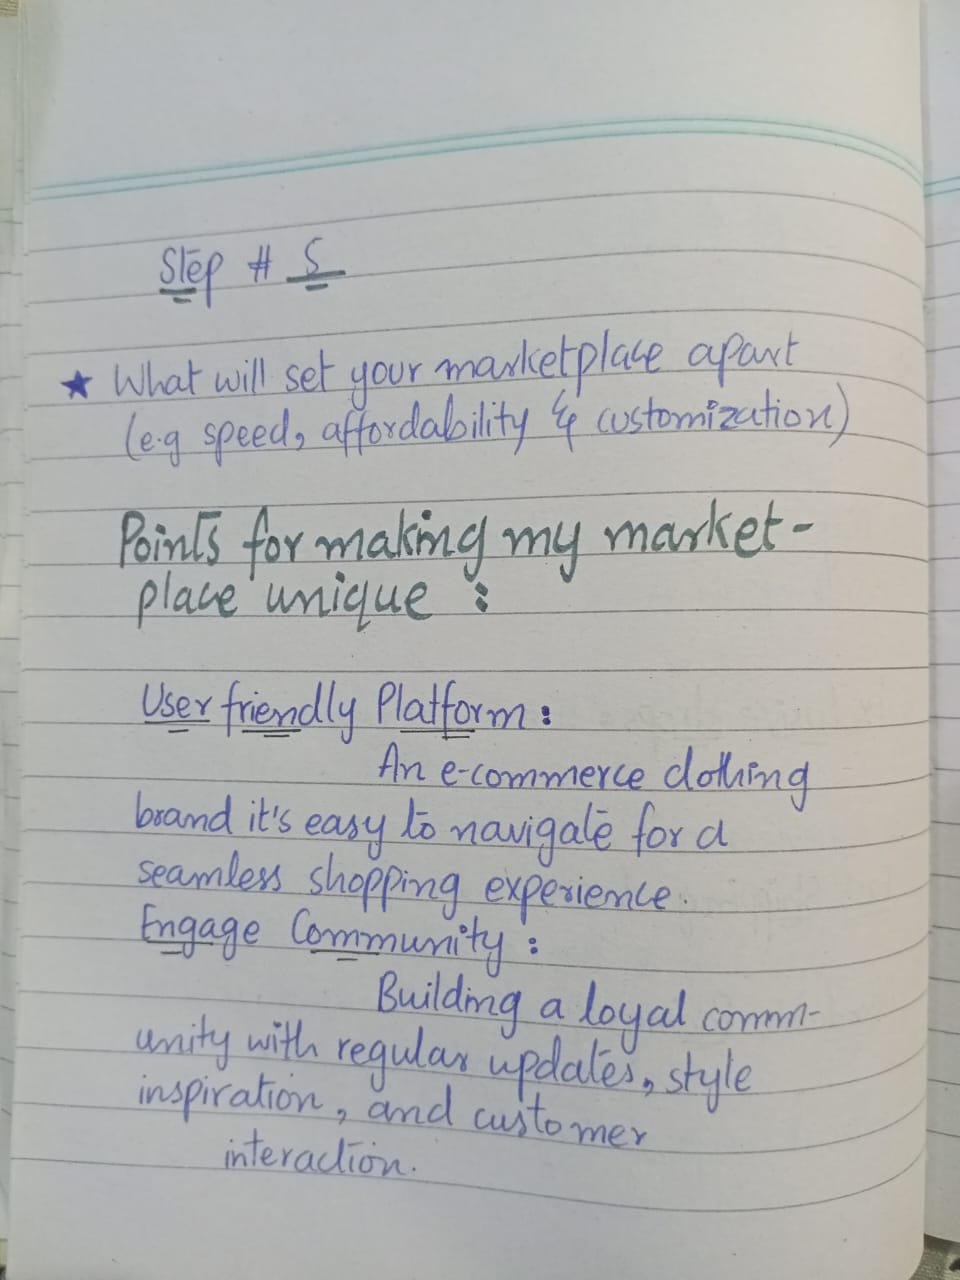 Step # 5
★ What will set your marketplace apart
(e.g speed, affordability & customization)
Points for making my market-
place unique :
User friendly Platform :
An e-commerce clothing
brand it's easy to navigate for a
seamless shopping experience.
Engage Community :
Building a loyal comm-
unity with regular updates, style
inspiration, and customer
interaction.